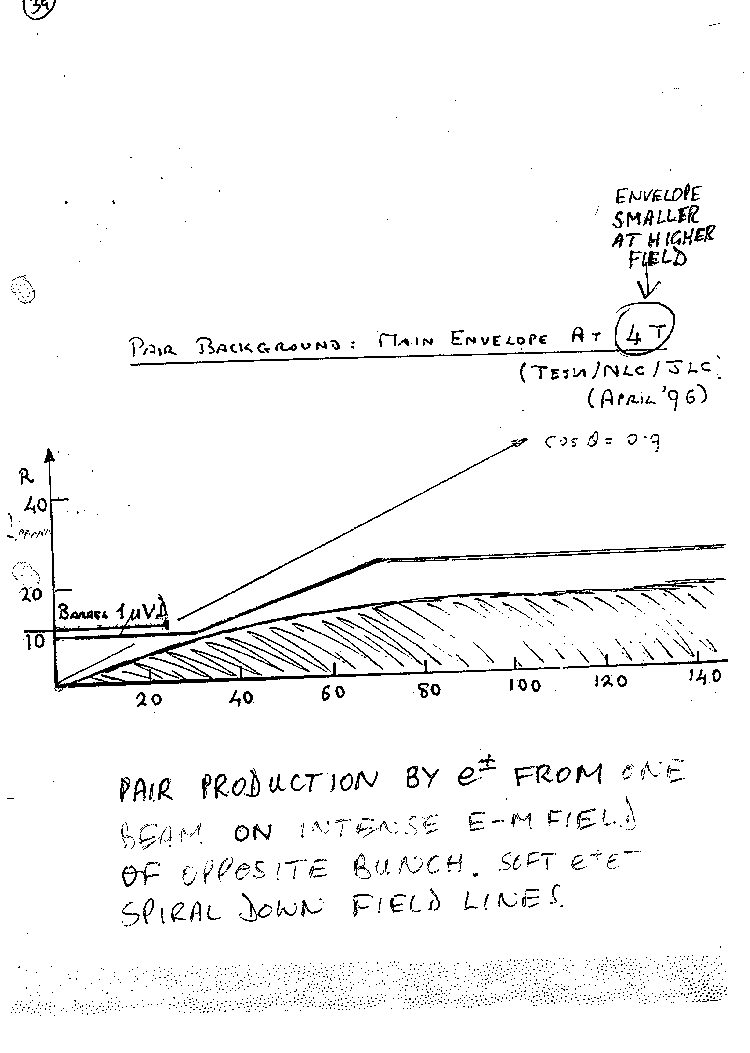 39
ENVELOPE
SMALLER
AT HIGHER
FIELD
PAIR BACKGROUND: MAIN ENVELOPE AT 4T
(TESLA/NLC/JLC)
(APRIL '96)
cos θ = 0.9
R
40
20
BARREL 1 μVD
10
20 40 60 80 100 120 140
PAIR PRODUCTION BY e± FROM ONE
BEAM ON INTENSE E-M FIELD
OF OPPOSITE BUNCH. SOFT e+e-
SPIRAL DOWN FIELD LINES.